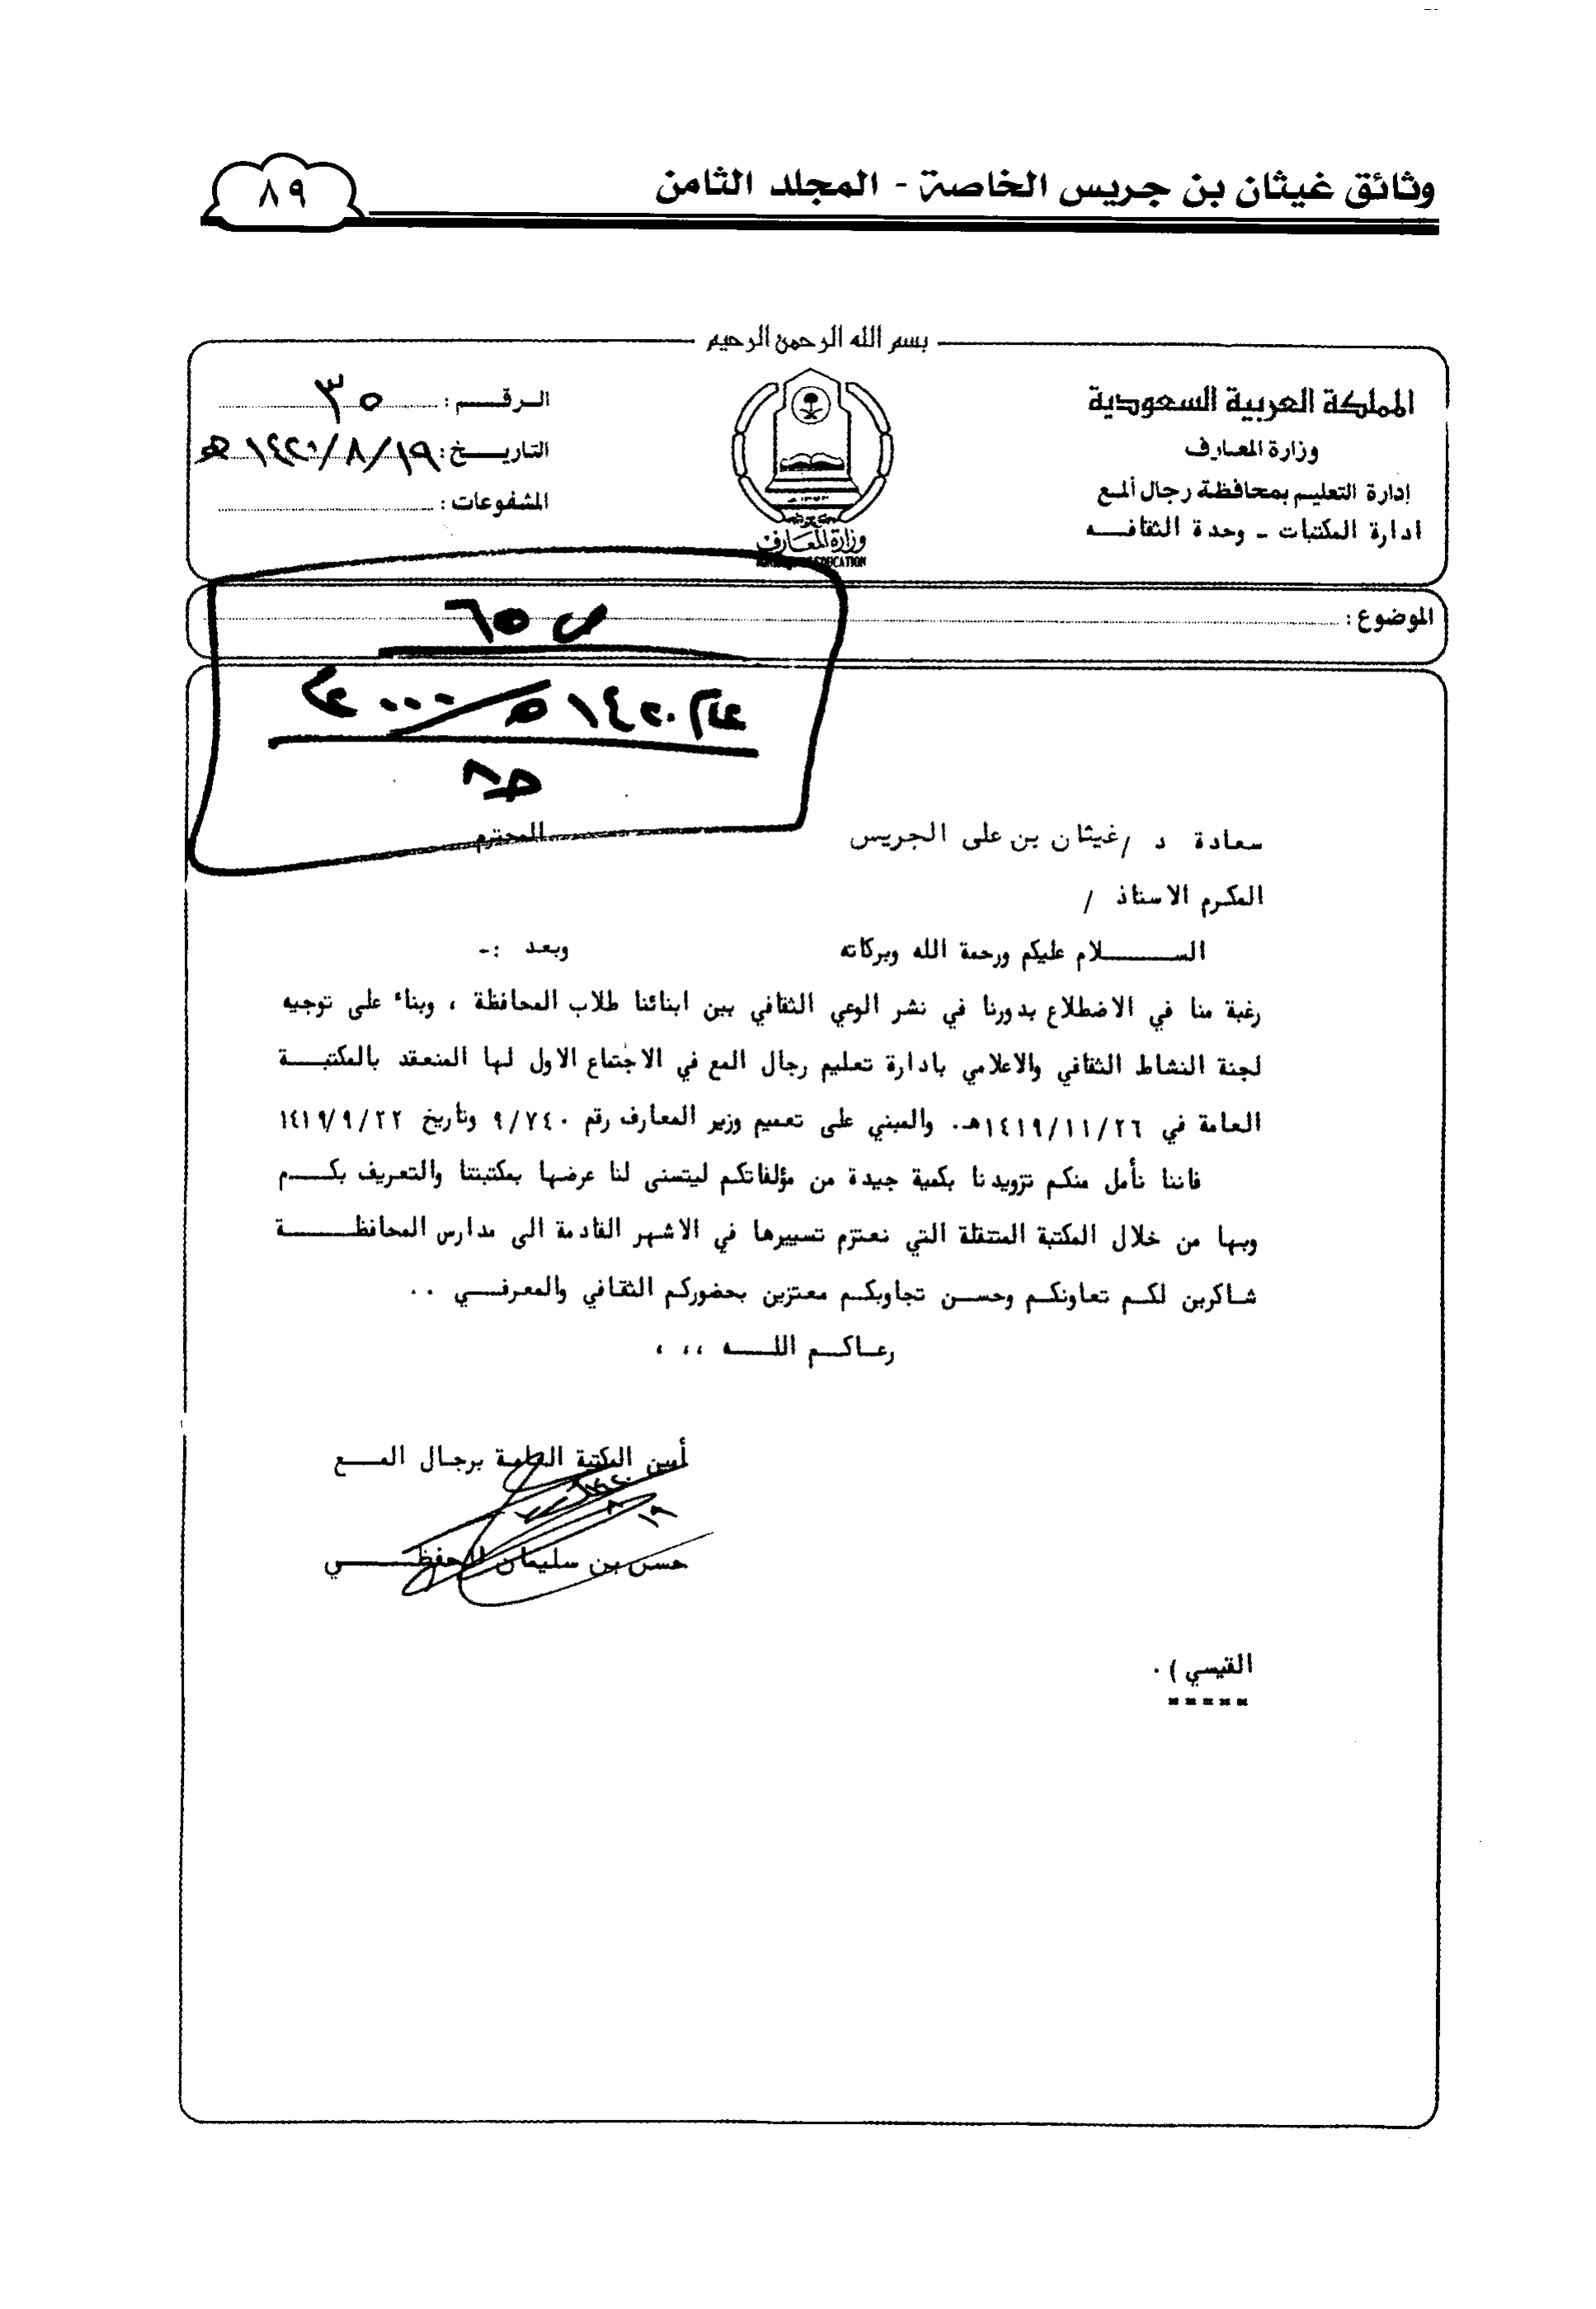 وثائق غيثان بن جريس الخاصة - المجلد الثامن
٨٩
بسم الله الرحمن الرحيم
المملكة العربية السعودية
وزارة المعارف
إدارة التعليم بمحافظة رجال ألمع
ادارة المكتبات - وحدة الثقافــه
وزارة المعارف
الـرقــــم : ٣٥
التاريـــخ : ١٤٢٠/٨/١٩ هـ
المشفوعات :
الموضوع :
ص ٦٥
عام ١٤٢٠هـ
سعادة د / غيثان بن على الجريس المحترم
المكرم الاستاذ /
الســــلام عليكم ورحمة الله وبركاته وبعد :-
رغبة منا في الاضطلاع بدورنا في نشر الوعي الثقافي بين ابنائنا طلاب المحافظة ، وبناء على توجيه
لجنة النشاط الثقافي والاعلامي بادارة تعليم رجال المع في الاجتماع الاول لها المنعقد بالمكتبـــة
العامة في ١٤١٩/١١/٢٦هـ. والمبني على تعميم وزير المعارف رقم ٩/٧٤٠ وتاريخ ١٤١٩/٩/٢٢
فاننا نأمل منكم تزويدنا بكمية جيدة من مؤلفاتكم ليتسنى لنا عرضها بمكتبتنا والتعريف بكـــم
وبها من خلال المكتبة المتنقلة التي نعتزم تسييرها في الاشهر القادمة الى مدارس المحافظـــــة
شاكرين لكم تعاونكم وحسن تجاوبكم معتزين بحضوركم الثقافي والمعرفـــي ..
رعـاكـم اللـــه ،، ،
أمين المكتبة العامة برجال المـــع
١٩
حسن بن سليمان الحفظـــــي
القيسي ) .
=====